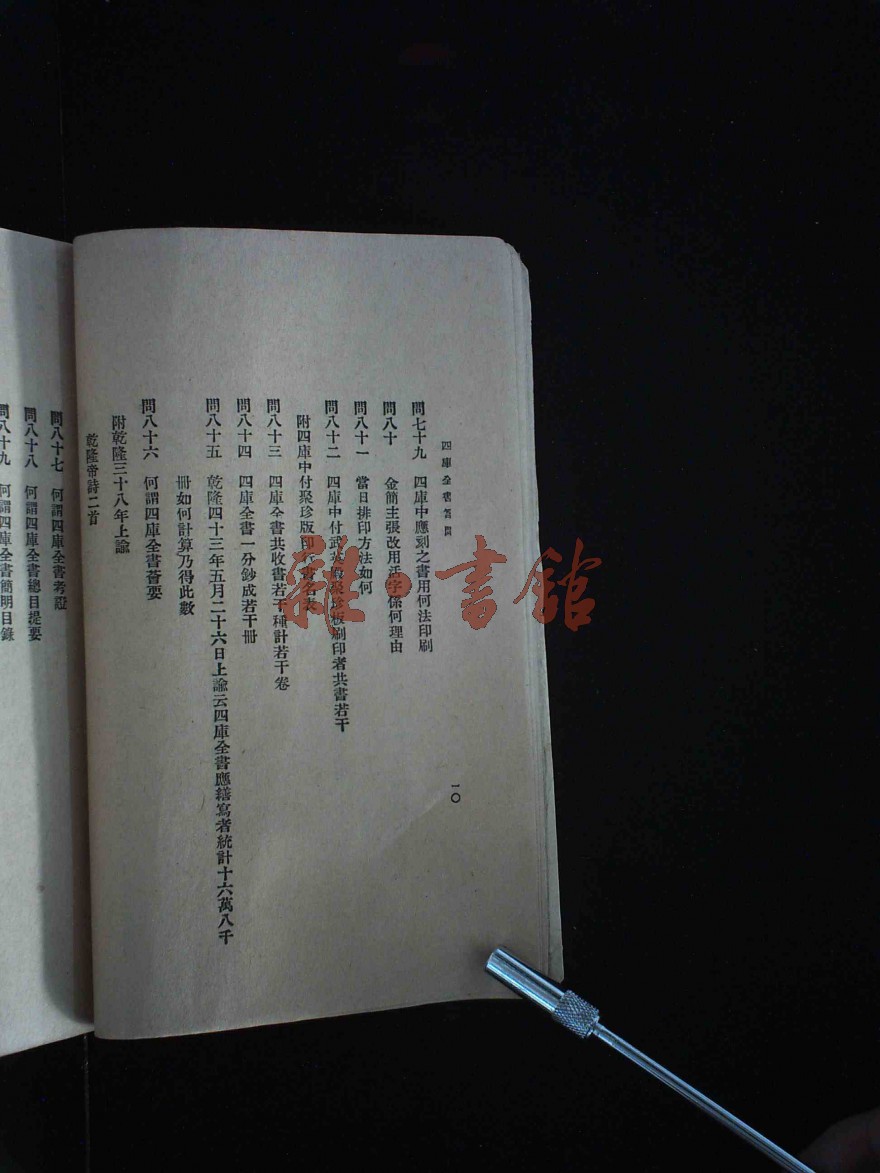 四庫全書答問
一〇
問七十九　四庫中應刻之書用何法印刷
問八十　金簡主張改用活字係何理由
問八十一　當日排印方法如何
問八十二　四庫中付武英殿聚珍板刷印者共書若干
附四庫中付聚珍版印行書名表
問八十三　四庫全書共收書若干種計若干卷
問八十四　四庫全書一分鈔成若干冊
問八十五　乾隆四十三年五月二十六日上諭云四庫全書應繕寫者統計十六萬八千
冊如何計算乃得此數
問八十六　何謂四庫全書薈要
附乾隆三十八年上諭
乾隆帝詩二首
問八十七　何謂四庫全書考證
問八十八　何謂四庫全書總目提要
問八十九　何謂四庫全書簡明目錄
雜·書館